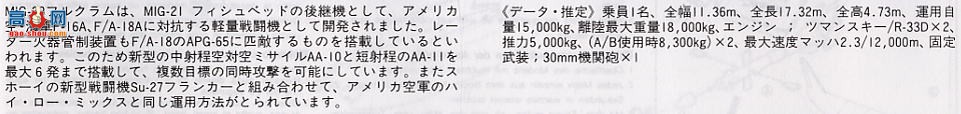 MIG-29フルクラムは、MIG-21 フィシュベッドの後継機として、アメリカ
16A、F/A-18Aに対抗する軽量戦闘機として開発されました。レー
ダー火器管制装置もF/A-18のAPG-65に匹敵するものを搭載しているとい
われます。このため新型の中射程空対空ミサイルAA-10と短射程のAA-11を
最大6発まで搭載して、複数目標の同時攻撃を可能にしています。またス
ホーイの新型戦闘機Su-27フランカーと組み合わせて、アメリカ空軍のハ
イ・ロー・ミックスと同じ運用方法がとられています。
《データ・推定》乗員1名、全幅11.36m、全長17.32m、全高4.73m、運用自
量15,000kg、離陸最大重量18,000kg、エンジン ; ツマンスキー/R-33D×2、
推力5,000kg、(A/B使用時8,300kg)×2、最大速度マッハ2.3/12,000m、固定
武装；30mm機関砲×1